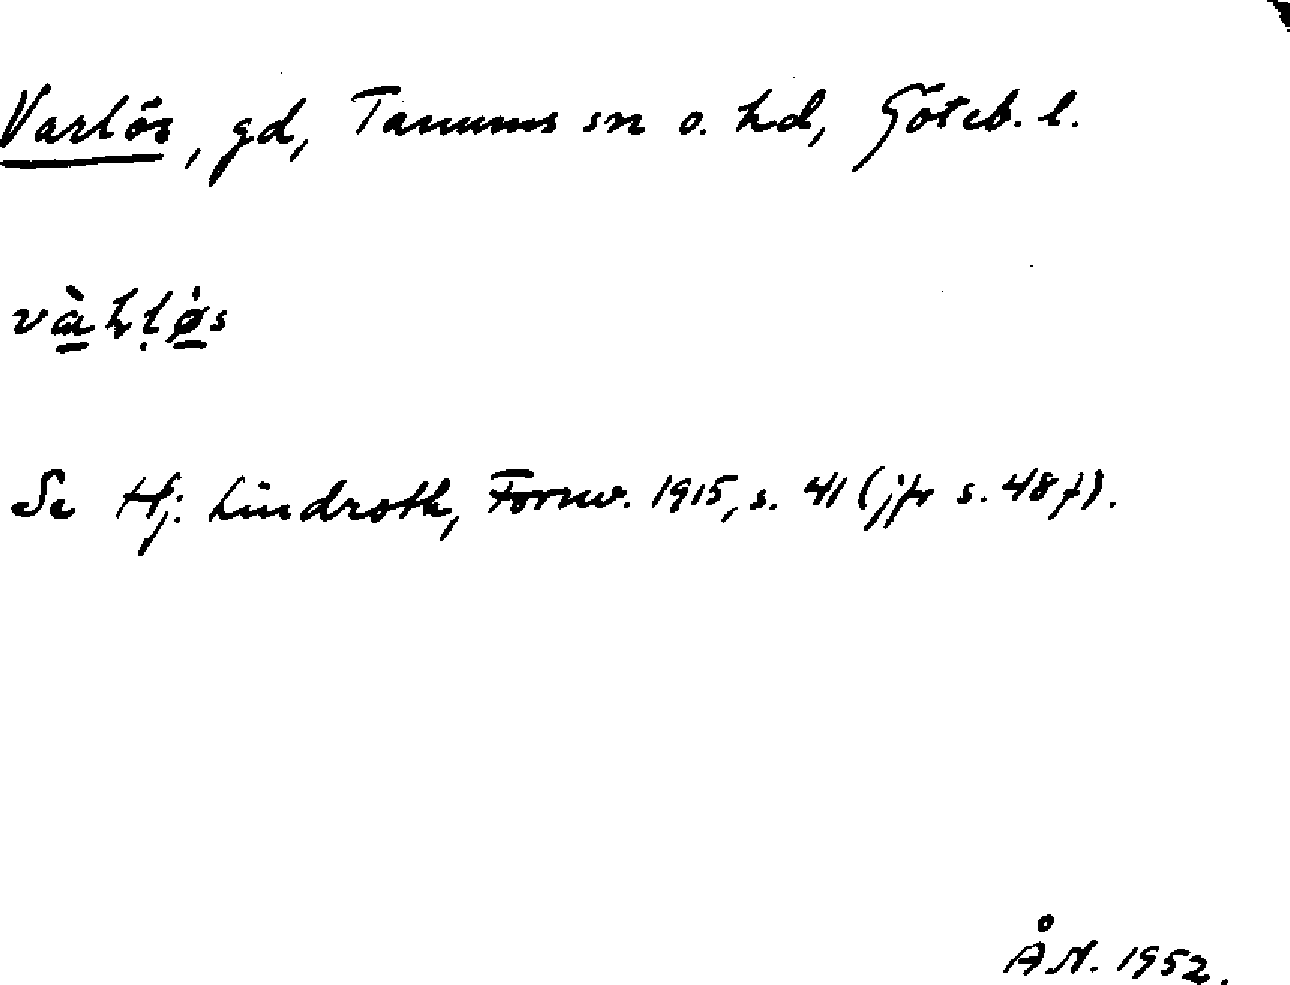 Varlös, gd, Tanums sn o. hd, Göteb. l.
Se Hj. Lindroth, Fornv. 1915, s. 41 (jfr s. 48 f).
ÅN. 1952.